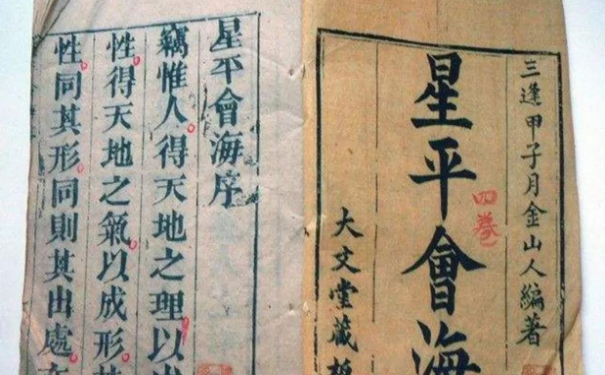 三逢甲子月金山人編著
星平會海
四卷
大文堂藏板
星平會海序
竊惟人得天地之理以
性得天地之氣以成形
性同其形同則其出處